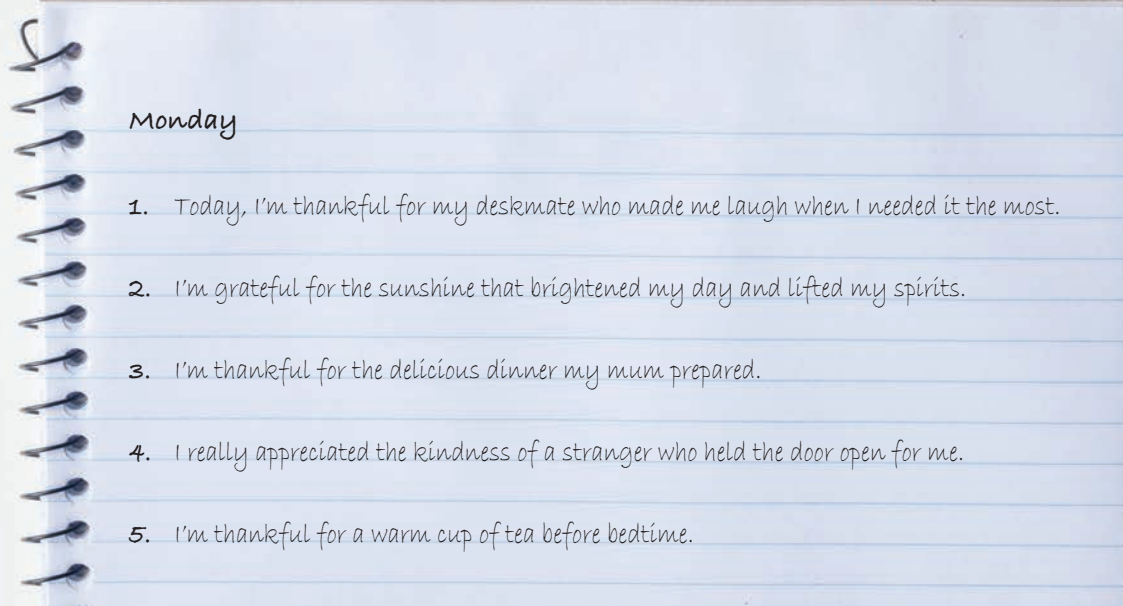 Monday
1. Today, I'm thankful for my deskmate who made me laugh when I needed it the most.
2. I'm grateful for the sunshine that brightened my day and lifted my spirits.
3. I'm thankful for the delicious dinner my mum prepared.
4. I really appreciated the kindness of a stranger who held the door open for me.
5. I'm thankful for a warm cup of tea before bedtime.